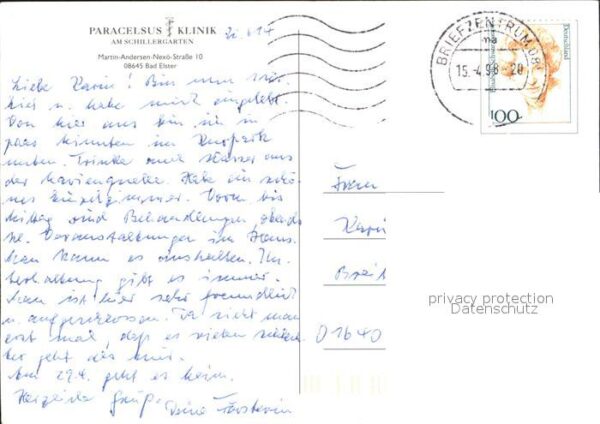 PARACELSUS KLINIK
AM SCHILLERGARTEN
Martin-Andersen-Nexö-Straße 10
08645 Bad Elster
Zi. 614
Liebe Karin! Bin nun
hier u. habe mich eingelebt.
Von hier aus bin ich in
paar Minuten im Kurpark
unten. Trinke auch Wasser aus
der Marienquelle. Habe ein schö-
nes Einzelzimmer. Vorm bis
Mittag sind Behandlungen, abends
Veranstaltungen im Haus.
Man kann es aushalten. Un-
terhaltung gibt es immer.
Man ist hier sehr freundlich
u. aufgeschlossen. Da sieht man
erst mal, daß es vielen schlech-
ter geht als mir.
Am 29.4. geht es heim.
Herzliche Grüße
Deine
BRIEFZENTRUM 08
ma
15.-4.98-20
Deutschland
100
Frau
Karin
Breit
01640
privacy protection
Datenschutz